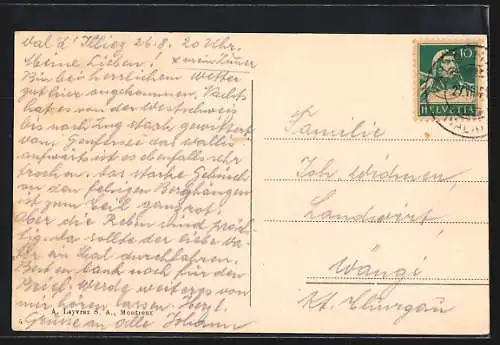 Val d'Illiez 26.8. 20 Uhr.
Meine Lieben! x mein Zimmer
Bin bei herrlichem Wetter
gut hier angekommen. Nachts
hat es von der Westschweiz
bis nach Zug stark gewittert
vom Genfersee das Wallis
aufwärts ist es ebenfalls sehr
trocken. Das starke Gebüsch
an den felsigen Berghängen
ist zum Teil ganz rot.
Aber die Reben sind präch-
tig. Da sollte der liebe Va-
ter an Mal durchfahren.
Besten Dank noch für den
Brief. Werde weiteres von
mir hören lassen. Herzl.
Grüsse an alle Johann
A. Layvraz S. A., Montreux
10
HELVETIA
Familie
Joh. Widmer,
Landwirt,
Wängi
Kt. Thurgau